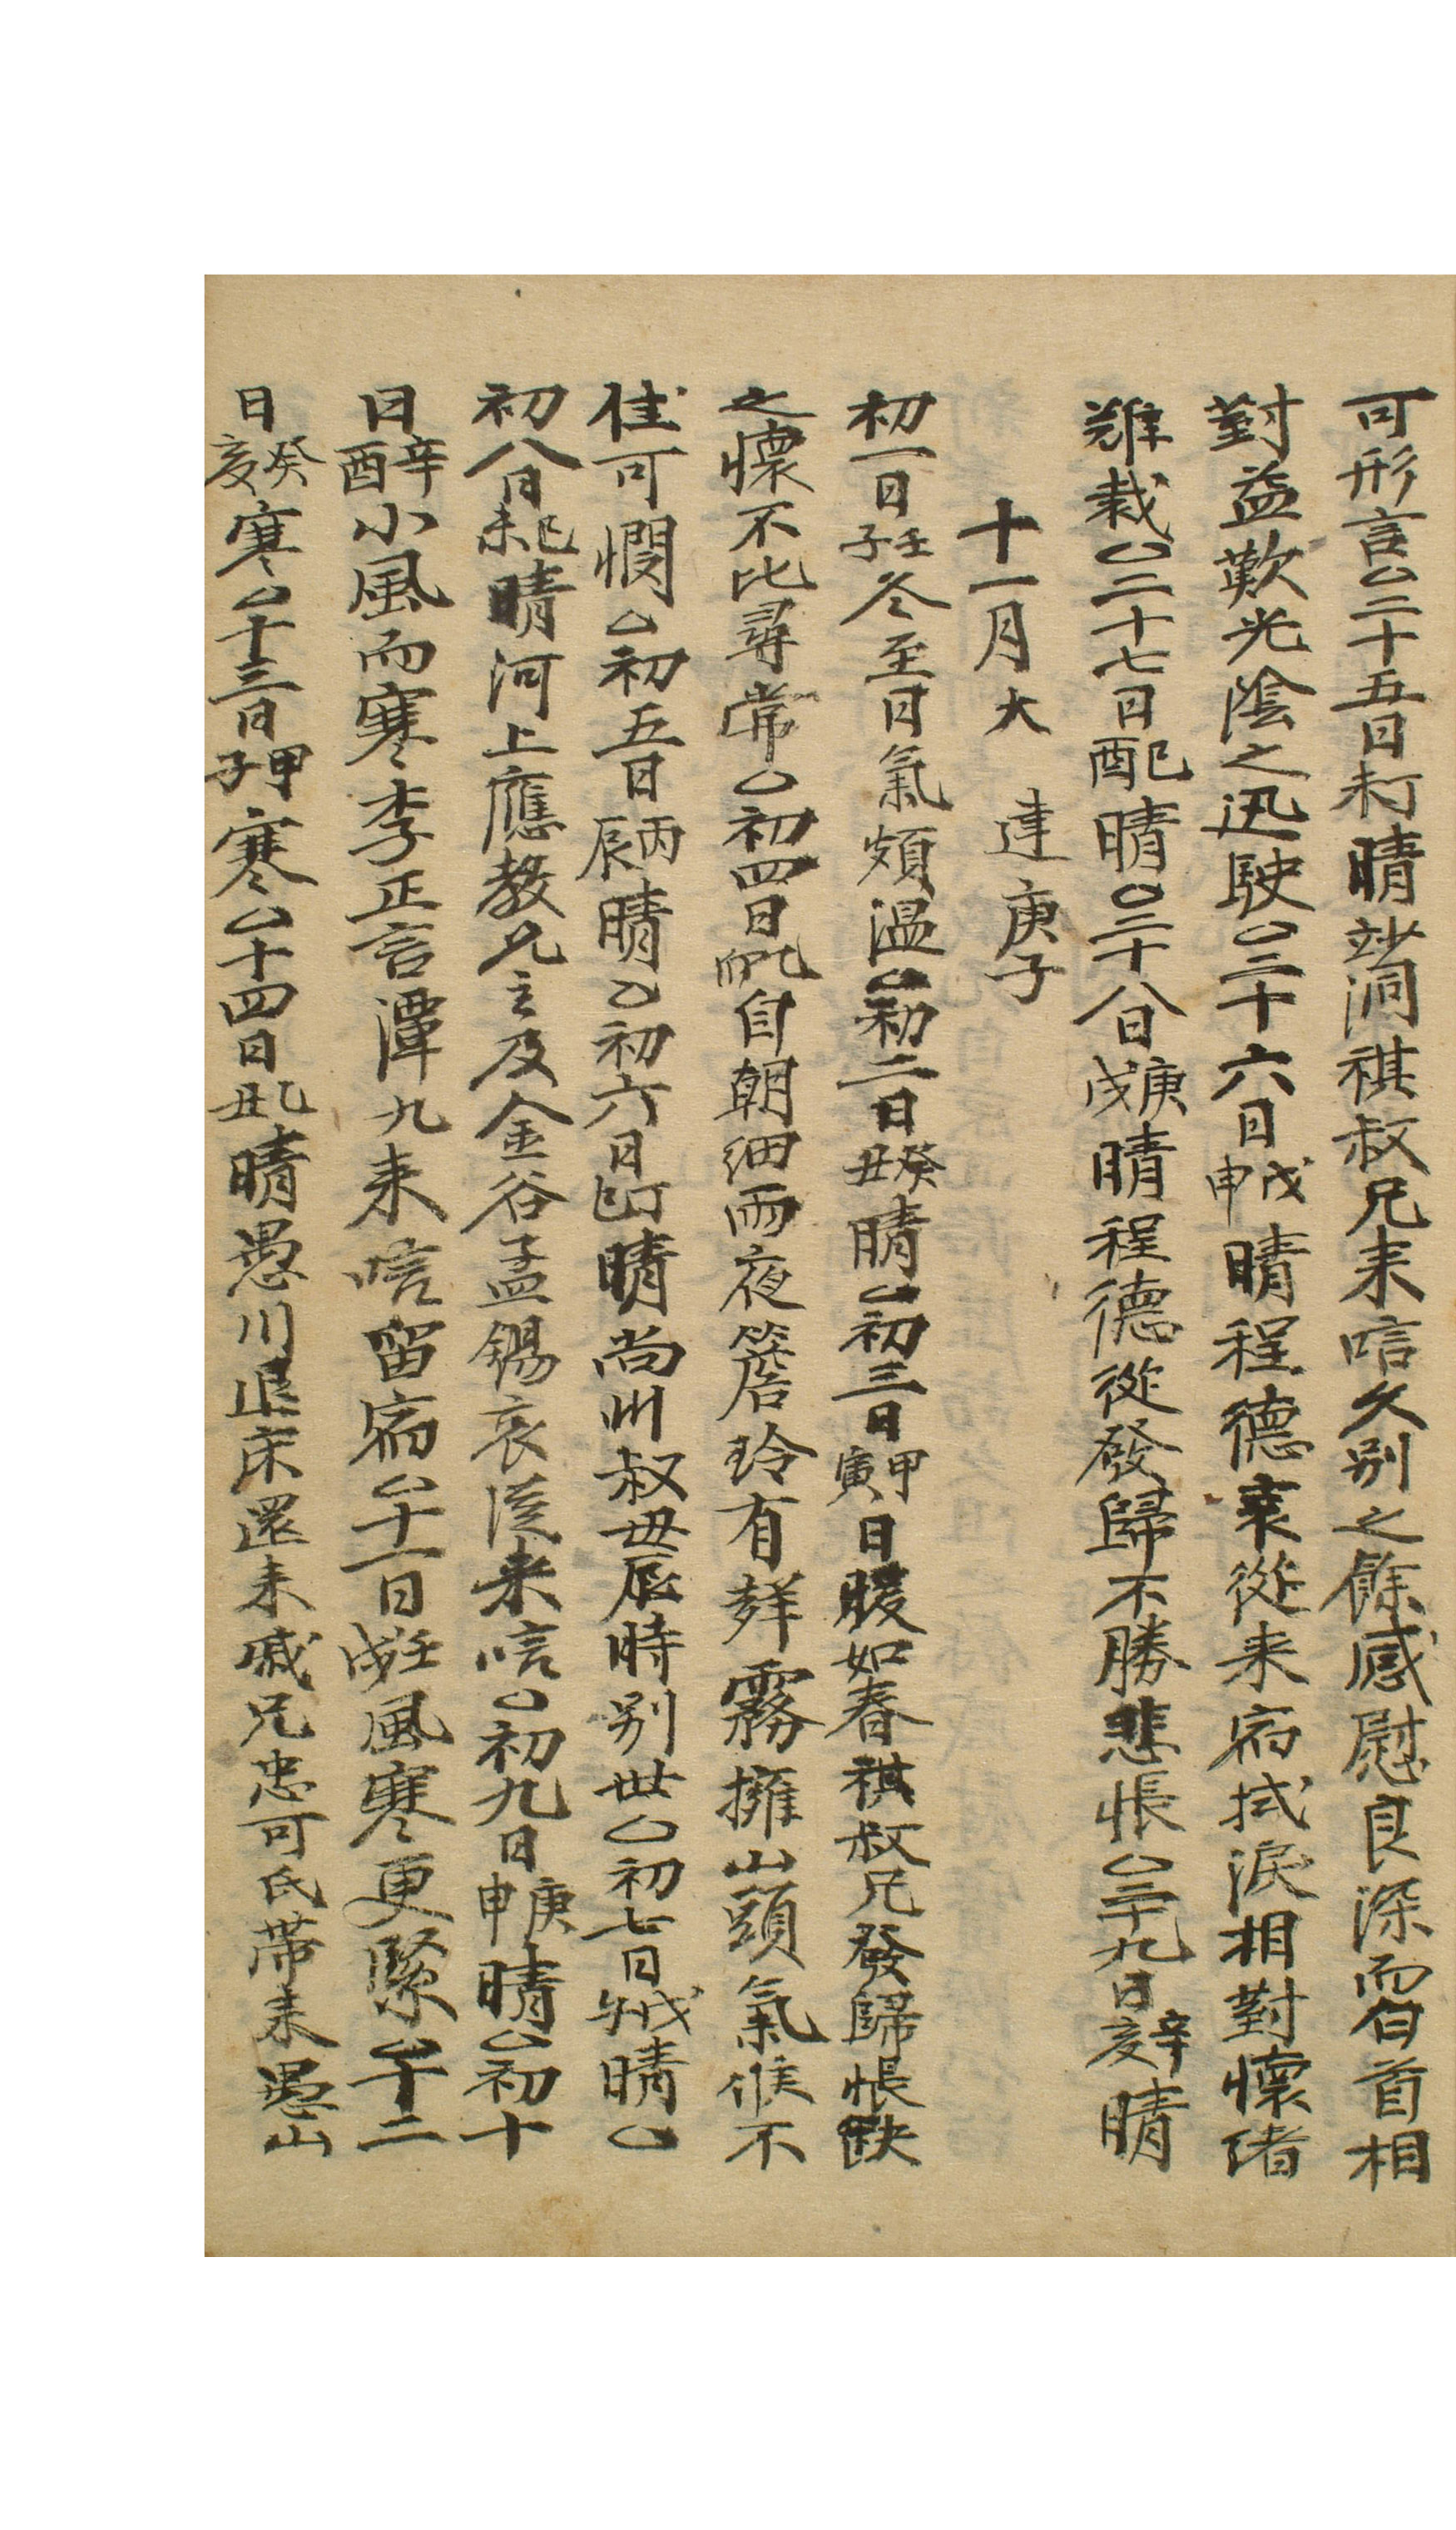 可形言〇二十五日丁未晴站洞祺叔兄来唁久別之餘感慰良深而白首相
對益歎光陰之迅駛〇二十六日戊申晴程德哀從来宿拭淚相對懷緖
難裁〇二十七日己酉晴〇二十八日庚戌晴程德從發歸不勝悲悵〇二十九日辛亥晴
十一月大 建庚子
初一日壬子冬至日氣頗溫〇初二日癸丑晴〇初三日甲寅日暖如春祺叔兄發歸悵缺
之懷不比尋常〇初四日乙卯自朝細雨夜簷玲有聲霧擁山頭氣候不
佳可憫〇初五日丙辰晴〇初六日丁巳晴尚州叔母辰時別世〇初七日戊午晴〇
初八日己未晴河上應敎兄主及金谷孟錫哀從来唁〇初九日庚申晴〇初十
日辛酉小風而寒李正言潭九来唁留宿〇十一日壬戌風寒更緊〇十二
日癸亥寒〇十三日甲子寒〇十四日乙丑晴愚川退床還来戚兄忠可氏帶来愚山